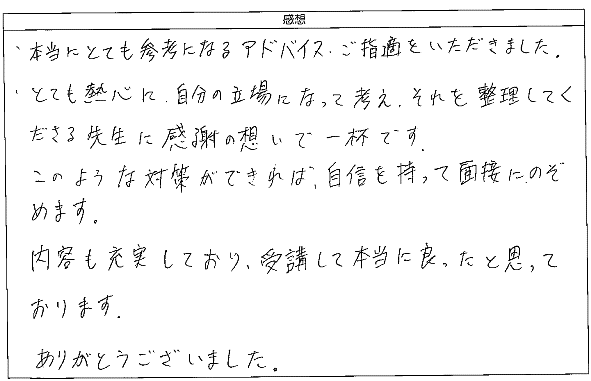 感想
・本当にとても参考になるアドバイス・ご指摘をいただきました。
・とても熱心に、自分の立場になって考え、それを整理してく
ださる先生に感謝の想いで一杯です。
このような対策ができれば、自信を持って面接にのぞ
めます。
内容も充実しており、受講して本当に良ったと思って
おります。
ありがとうございました。